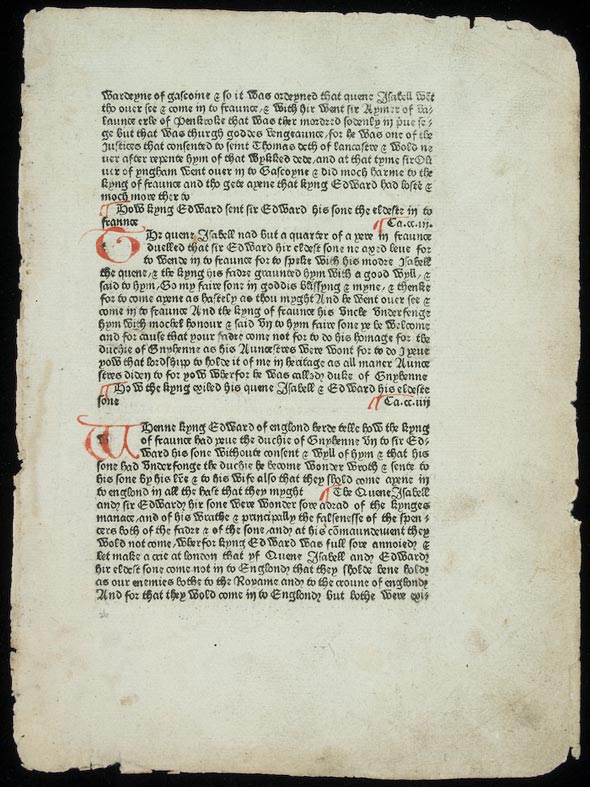 wardeyne of gascoine & so it was ordeyned that quene Isabell wēt
tho ouer see & come in to fraunce, & with hir went sir Aymer of va-
launce erle of Penbroke that was ther mordred sodenly in
ge but that was thurgh goddes vengeaunce, for he was one of the
Iustices that consented to seint Thomas deth of lancastre & wold ne
uer after repente hym of that wykked dede, and at that tyme sir Oli
uer of yngham went ouer in to Gascoyne & did moch harme to the
kyng of fraunce and tho gete ayene that kyng Edward had loste &
moch more ther to
¶ How kyng Edward sent sir Edward his sone the eldeste in to
fraunce ¶ Ca.cc.iij.
THe quene Isabell nad but a quarter of a yere in fraunce
duelled that sir Edward hir eldest sone ne axed leue for
to wende in to fraunce for to speke with his modre Isabell
the quene, & the kyng his fadre graunted hym with a good wyll, &
said to hym, Go my faire sone in goddis blissyng & myne, & thenke
for to come ayene as hastely as thou myght And he went ouer see &
come in to fraunce And the kyng of fraunce his vncle vnderfenge
hym with mochel honour & said vn to hym faire sone ye be welcome
and for cause that your fader come not for to do his homage for the
duchie of Gnyhenne as his Auncestres were wont for to do I yeue
yow that lordshipp to holde it of me in heritage as all maner Aunce
stres diden to for yow wherfor he was called duke of Gnyhenne
¶ How the kyng exiled his quene Isabell & Edward his eldeste
sone ¶ Ca.cc.iiij
WHenne kyng Edward of england herde telle how the kyng
of fraunce had yeue the duchie of Gnyhenne vn to sir Ed-
ward his sone withoute consent & wyll of hym & that his
sone had vnderfonge the duchie he become wonder wroth & sente to
his sone by his lre & to his wife also that they shold come ayene in
to england in all the hast that they myght ¶ The Quene Isabell
and sir Edward hir sone were wonder sore adrad of the kynges
manace, and of his wrathe & principally the falsenesse of the spen-
cers both of the fader & of the sone, and at his cōmaundement they
wold not come, wherfor kyng Edward was full sore annoied &
let make a crie at london that yf Quene Isabell and Edward
hir eldest sone come not in to England that they sholde bene hold
as our enemies bothe to the Royame and to the croune of englond
And for that they wold come in to Englond but bothe were exi-